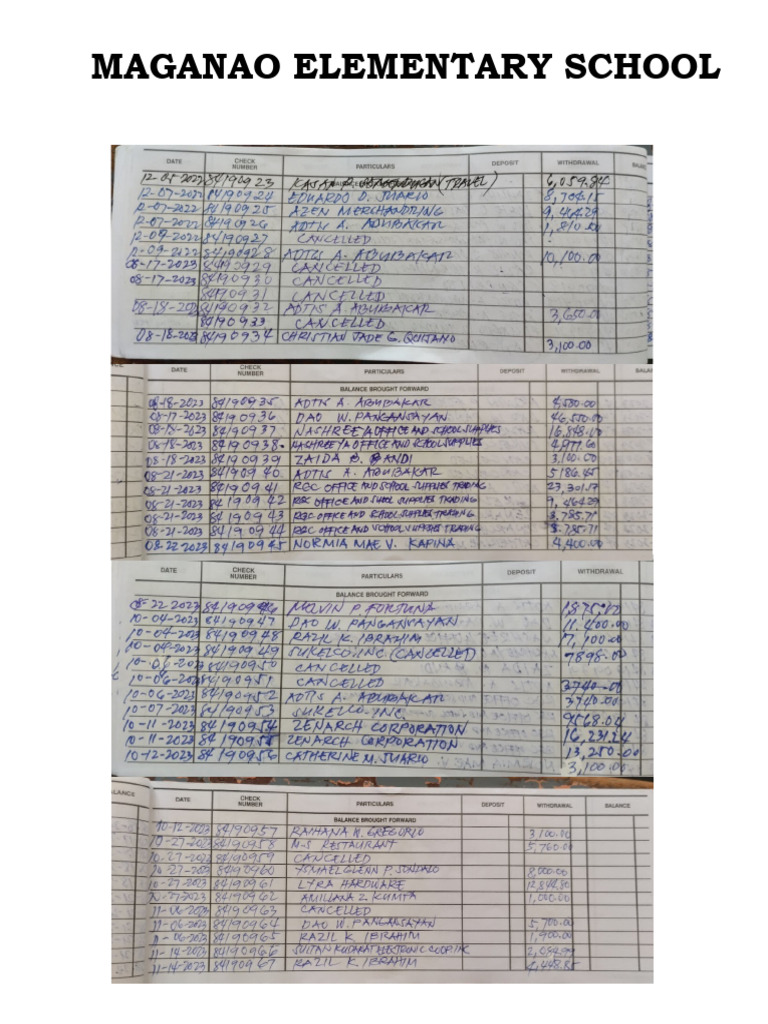 MAGANAO ELEMENTARY SCHOOL
DATE CHECK NUMBER PARTICULARS DEPOSIT WITHDRAWAL
12-05-2022 84190923 (TRAVEL) 6,059.84
12-07-2022 84190924 EDUARDO D. SUARIO 8,704.15
12-07-2022 84190925 AZEN MERCHANDRING 9,464.29
12-07-2022 84190926 ADTIS A. ABUBAKAR
12-09-2022 84190927 CANCELLED
12-09-2022 84190928 ADTIS A. ABUBAKAR 10,100.00
08-17-2023 84190929 CANCELLED
08-17-2023 84190930 CANCELLED
84190931 CANCELLED
08-18-2023 84190932 ADTIS A. ABUBAKAR 3,650.00
84190933 CANCELLED
08-18-2023 84190934 CHRISTIAN JADE G. QUIJANO 3,100.00
DATE CHECK NUMBER PARTICULARS DEPOSIT WITHDRAWAL
BALANCE BROUGHT FORWARD
08-18-2023 84190935 ADTIS A. ABUBAKAR
08-17-2023 84190936 DAO W. PANGANSAYAN 46,550.00
08-18-2023 84190937 NASHREEYA OFFICE AND SCHOOL SUPPLIES
08-18-2023 84190938 NASHREEYA OFFICE AND SCHOOL SUPPLIES
08-18-2023 84190939 ZAIDA B. 3,100.00
08-21-2023 84190940 ADTIS A. ABUBAKAR 5,186.45
08-21-2023 84190941 RGC OFFICE AND SCHOOL SUPPLIES TRADING
08-21-2023 84190942 RGC OFFICE AND SCHOOL SUPPLIES TRADING 9,464.29
08-21-2023 84190943 RGC OFFICE AND SCHOOL SUPPLIES TRADING 3,785.71
08-21-2023 84190944 RGC OFFICE AND SCHOOL SUPPLIES TRADING 3,785.71
08-22-2023 84190945 NORMIA MAE V. KAPINA 4,400.00
DATE CHECK NUMBER PARTICULARS DEPOSIT WITHDRAWAL
BALANCE BROUGHT FORWARD
08-22-2023 84190946 MELVIN P. FORTUNA
10-04-2023 84190947 DAO W. PANGANSAYAN 11,400.00
10-04-2023 84190948 RAZIL K. IBRAHIM 7,100.00
10-04-2023 84190949 SUKELCO.INC (CANCELLED) 7898.00
10-06-2023 84190950 CANCELLED
10-06-2023 84190951 CANCELLED 3740.00
10-06-2023 84190952 ADTIS A. ABUBAKAR 3740.00
10-07-2023 84190953 SUKELCO INC. 9568.04
10-11-2023 84190954 ZENARCH CORPORATION 16,231.24
10-11-2023 84190955 ZENARCH CORPORATION 13,250.00
10-12-2023 84190956 CATHERINE M. SUARIO 3,100.00
DATE CHECK NUMBER PARTICULARS DEPOSIT WITHDRAWAL BALANCE
BALANCE BROUGHT FORWARD
10-12-2023 84190957 RAIHANA W. GREGORIO 3,100.00
10-27-2023 84190958 M.S RESTAURANT 5,760.00
10-27-2023 84190959 CANCELLED
10-27-2023 84190960 YSMAEL GLENN P. 8,000.00
10-27-2023 84190961 LYRA HARDWARE 12,844.80
10-27-2023 84190962 AMILLANA Z. KUMTA 1,000.00
11-06-2023 84190963 CANCELLED
11-06-2023 84190964 DAO W. PANGANSAYAN 5,700.00
11-06-2023 84190965 RAZIL K. IBRAHIM 1,900.00
11-14-2023 84190966 SULTAN KUDARAT ELECTRONIC COOP. INC
11-14-2023 84190967 RAZIL K. IBRAHIM